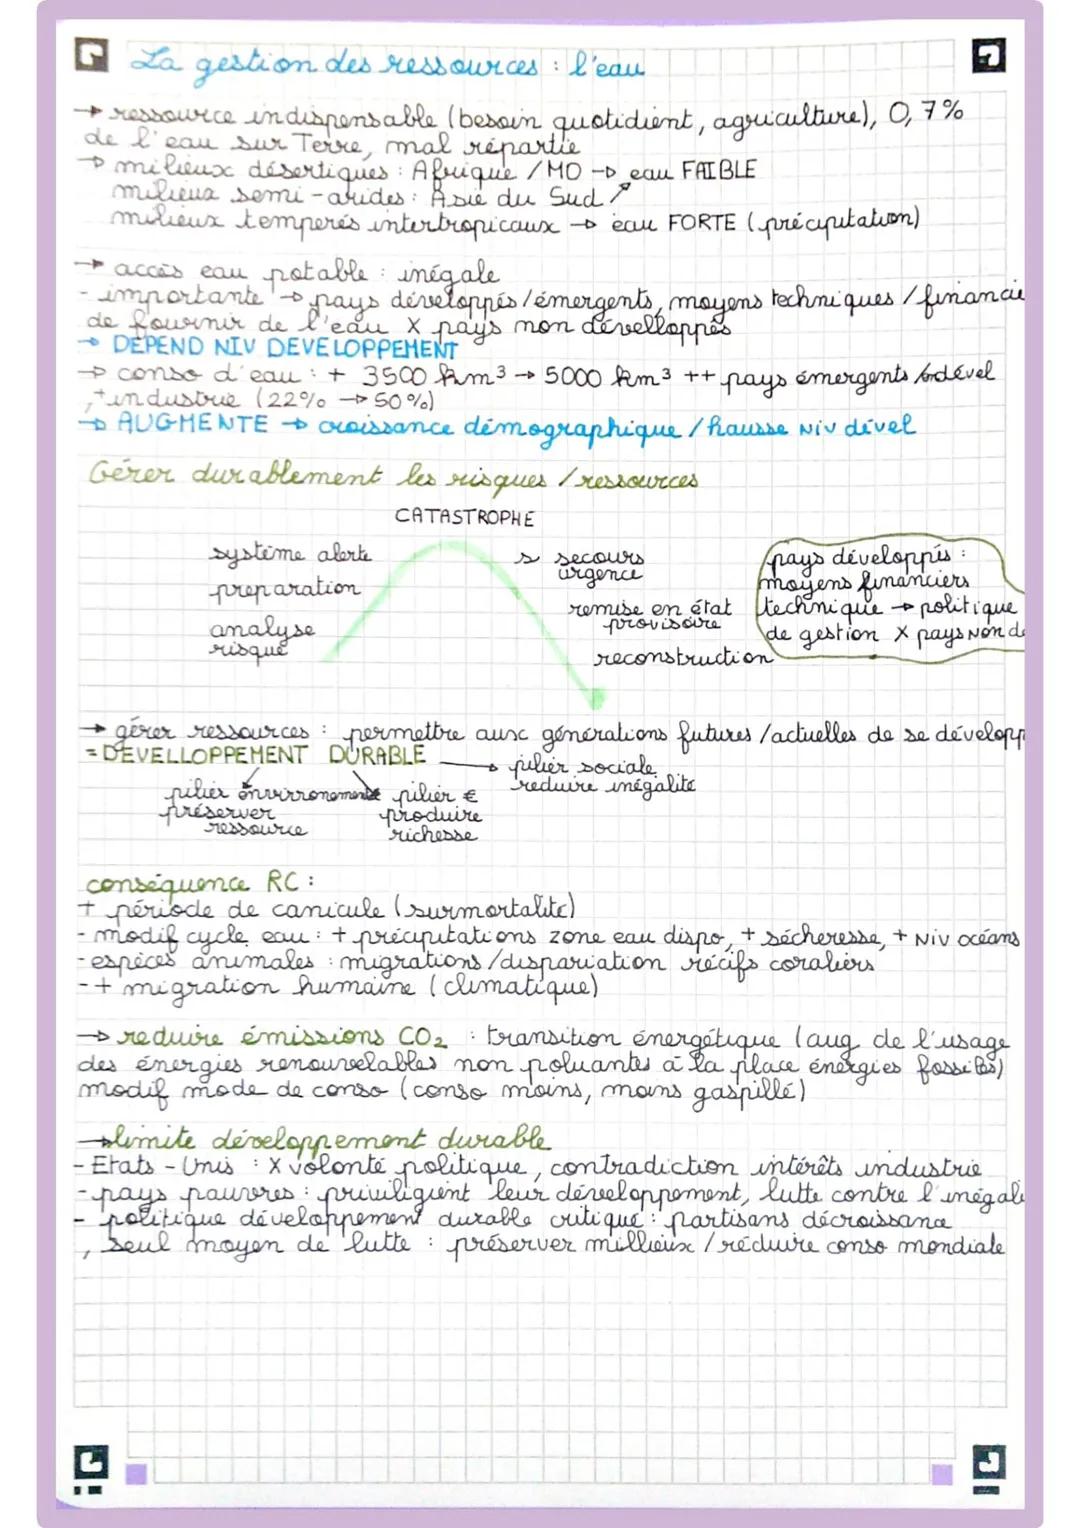 La gestion des ressources : l'eau
→ ressource indispensable (besoin quotidient, agriculture), 0,7%
de l'eau sur Terre, mal répartie
→ milieux désertiques : Afrique / MO → eau FAIBLE
milieux semi-arides : Asie du Sud ↗
milieux temperés intertropicaux → eau FORTE (précipitation)
→ accès eau potable : inégale
- importante → pays développés / émergents, moyens techniques / financie
de fournir de l'eau X pays non dévelloppés
→ DEPEND NIV DEVELOPPEMENT
→ conso d'eau : + 3500 km³ → 5000 km³ ++ pays émergents devel
, + industrie (22% → 50%)
→ AUGMENTE → croissance démographique / hausse NIV dével
Gérer durablement les risques / ressources
CATASTROPHE
système alerte
preparation
analyse
risque
secours
urgence
remise en état
provisoire
reconstruction
pays développés :
moyens financiers
technique → politique
de gestion X pays NON de
→ gérer ressources : permettre aux générations futures / actuelles de se développ
= DEVELLOPPEMENT DURABLE → pilier sociale
reduire inégalité
pilier environnemental
préserver
ressource
pilier €
produire
richesse
conséquence RC :
+ période de canicule (surmortalité)
- modif cycle eau : + précipitations zone eau dispo, + sécheresse, + NIV océans
- espèces animales : migrations / dispariation récifs coraliers
- + migration humaine (climatique)
→ reduire émissions CO₂ : transition énergétique (aug de l'usage
des énergies renouvelables non poluantes à la place énergies fossiles)
modif mode de conso (conso moins, moins gaspillé)
→ limite développement durable
- Etats - Unis : X volonté politique, contradiction intérêts industrie
- pays pauvres : priviligient leur développement, lutte contre l'inégali
- politique développement durable critiqué : partisans décroissance
, seul moyen de lutte : préserver millieux / réduire conso mondiale